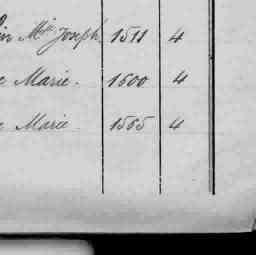 in Mie Joseph 1511 4
e Marie. 1500 4
e Marie 1565 4